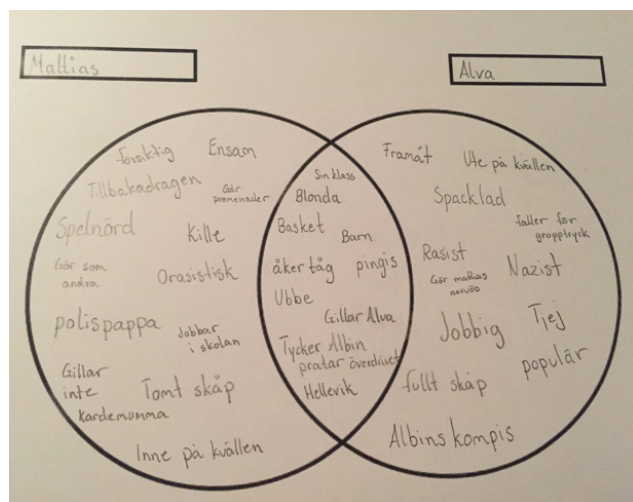 Mattias
Alva
försiktig
Ensam
Tillbakadragen
Går
promenader
Spelnörd
Kille
Gör som
andra
Orasistisk
polispappa
Jobbar
i skolan
Gillar
inte
Kardemumma
Tomt skåp
Inne på kvällen
Sin klass
Blonda
Basket
Barn
åker tåg
pingis
Ubbe
Gillar Alva
Tycker Albin
pratar överdrivet
Hellevik
Framåt
Ute på kvällen
Spacklad
faller för
grupptryck
Rasist
Gör mattias
nervös
Nazist
Jobbig
Tjej
populär
fullt skåp
Albins kompis